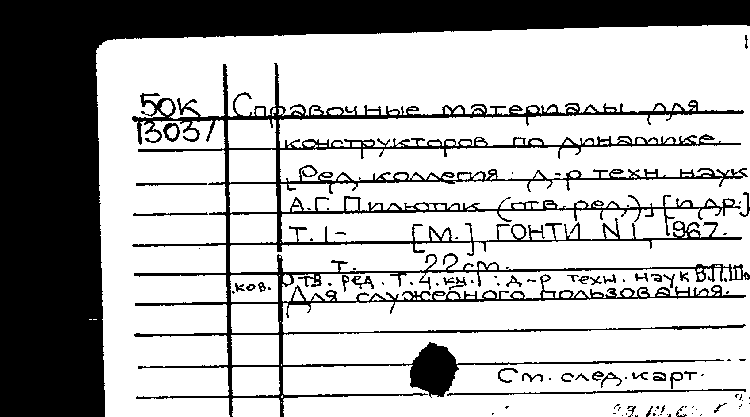 50К Справочные материалы для
13037
конструкторов по динамике.
[Ред. коллегия: д-р техн. наук
А.Г. Пилютик (отв. ред.), [и др.]
Т. 1- [М.], ГОНТИ N1, 1967.
т. 22 cm.
Отв. ред. Т.4. кн.1: д-р техн. наук
ков.
Для служебного пользования.
См. след. карт.